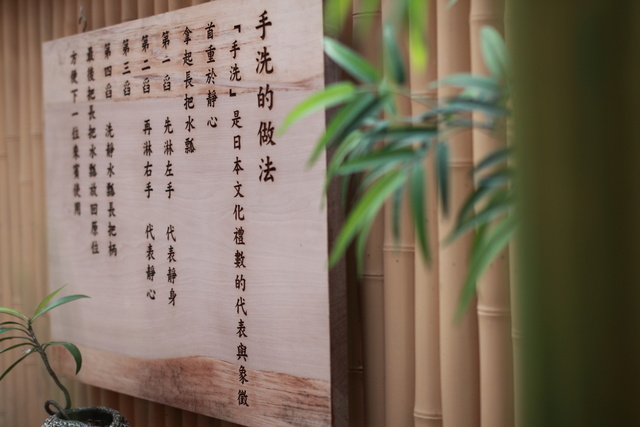 手洗的做法
『手洗』是日本文化禮數的代表與象徵
首重於靜心
拿起長把水瓢
第一舀 先淋左手 代表靜身
第二舀 再淋右手 代表靜心
第三舀
第四舀 洗靜水瓢長把柄
最後把長把水瓢放回原位
方便下一位來賓使用